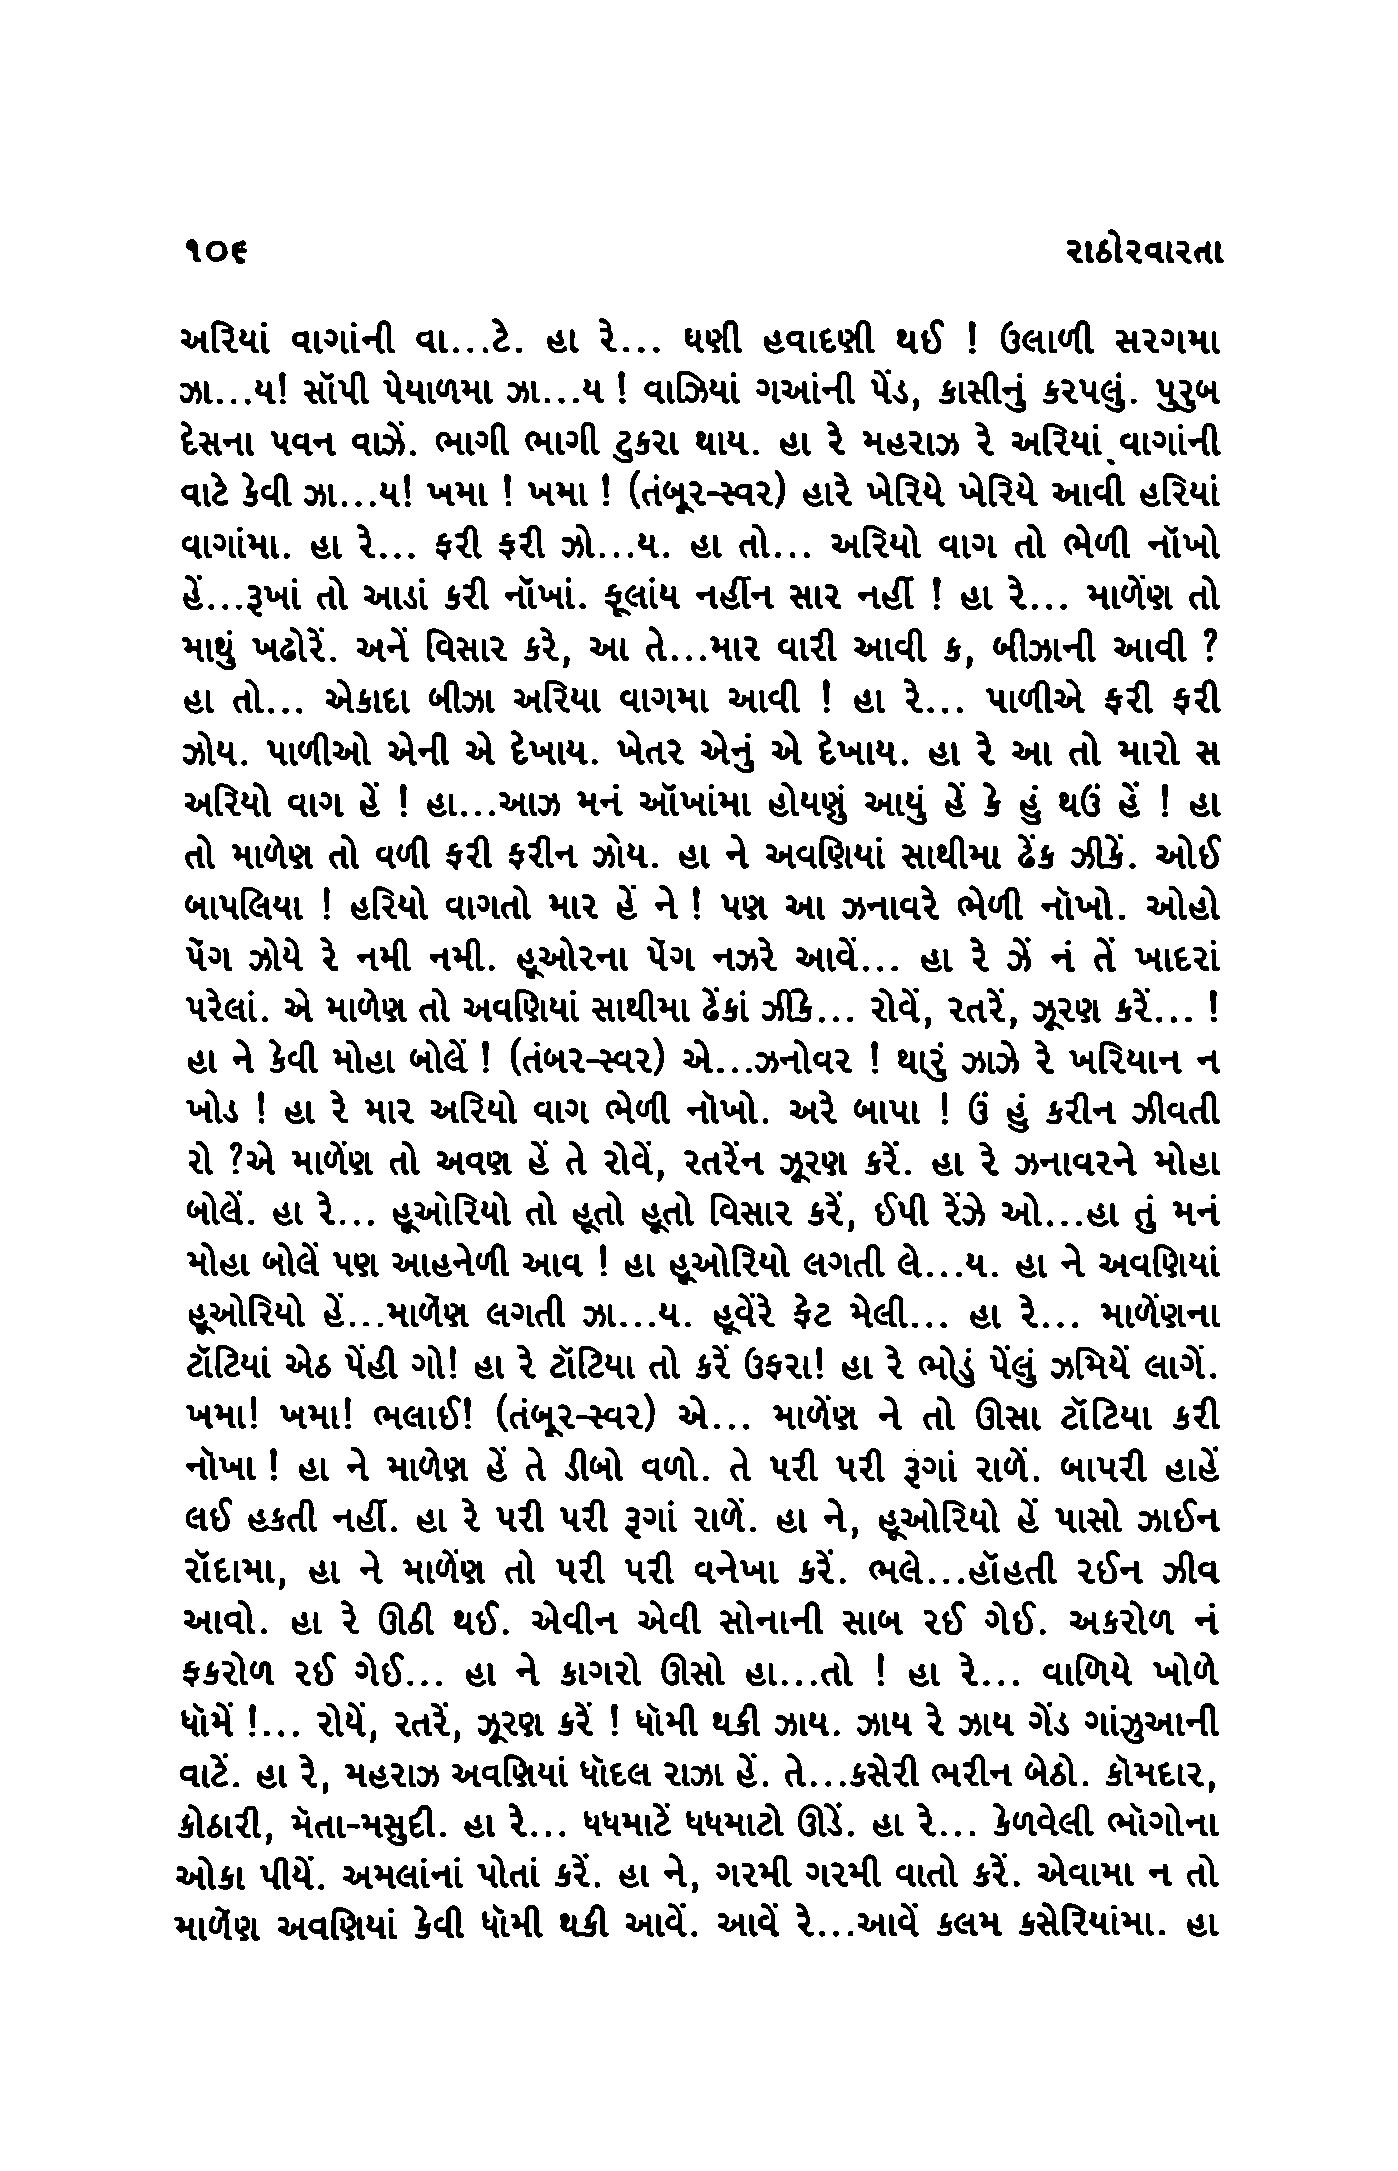 ૧૦૬ રાઠોરવારતા
અરિયાં વાગાંની વા...ટે. હા રે... ધણી હવાદણી થઈ ! ઉલાળી સરગમા
ઝા...ય! સૉપી પેયાળમા ઝા...ય ! વાઝિયાં ગઆંની પેંડ, કાસીનું કરપલું. પુરુબ
દેસના પવન વાઝેં. ભાગી ભાગી ટુકરા થાય. હા રે મહરાઝ રે અરિયાં વાગાંની
વાટે કેવી ઝા...ય! ખમા ! ખમા ! (તંબૂર-સ્વર) હારે ખેરિયે ખેરિયે આવી હરિયાં
વાગાંમા. હા રે... ફરી ફરી ઝો...ય. હા તો... અરિયો વાગ તો ભેળી નૉખો
હેં...રૂખાં તો આડાં કરી નૉખાં. ફૂલાંય નર્હીન સાર નહીં ! હા રે... માળેંણ તો
માથું ખઢોરેં. અનેં વિસાર કરે, આ તે...માર વારી આવી ક, બીઝાની આવી ?
હા તો... એકાદા બીઝા અરિયા વાગમા આવી ! હા રે... પાળીએ ફરી ફરી
ઝોય. પાળીઓ એની એ દેખાય. ખેતર એનું એ દેખાય. હા રે આ તો મારો સ
અરિયો વાગ હેં ! હા...આઝ મનં ઑખાંમા હોયણું આયું હેં કે હું થઉં હેં ! હા
તો માળેણ તો વળી ફરી ફરીન ઝોય. હા ને અવણિયાં સાથીમા ઢેંક ઝીકેં. ઓઈ
બાપલિયા ! હરિયો વાગતો માર હેં ને ! પણ આ ઝનાવરે ભેળી નૉખો. ઓહો
પેંગ ઝોયે રે નમી નમી. હૂઓરના પેંગ નઝરે આવેં... હા રે ઝેં નં તેં ખાદરાં
પરેલાં. એ માળેણ તો અવણિયાં સાથીમા ઢેંકાં ઝીંકે... રોવેં, રતરેં, ઝૂરણ કરેં... !
હા ને કેવી મોહા બોલેં ! (તંબર-સ્વર) એ...ઝનોવર ! થારું ઝાઝે રે ખરિયાન ન
ખોડ ! હા રે માર અરિયો વાગ ભેળી નૉખો. અરે બાપા ! ઉં હું કરીન ઝીવતી
રો ?એ માળેંણ તો અવણ હેં તે રોવેં, રતરેંન ઝૂરણ કરેં. હા રે ઝનાવરને મોહા
બોલેં. હા રે... હૂઓરિયો તો હૂતો હૂતો વિસાર કરેં, ઈપી રેંઝે ઓ...હા તું મનં
મોહા બોલેં પણ આહનેળી આવ ! હા હૂઓરિયો લગતી લે...ય. હા ને અવણિયાં
હૂઓરિયો હેં...માળેંણ લગતી ઝા...ય. હૂવેંરે ફેટ મેલી... હા રે... માળેંણના
ટૉટિયાં એઠ પેંહી ગો! હા રે ટૉટિયા તો કરેં ઉફરા! હા રે ભોડું પેંલું ઝમિયેં લાગેં.
ખમા! ખમા! ભલાઈ! (તંબૂર-સ્વર) એ... માળેંણ ને તો ઊસા ટૉટિયા કરી
નૉખા ! હા ને માળેણ હેં તે ડીબો વળો. તે પરી પરી રૂંગાં રાળેં. બાપરી હાહેં
લઈ હકતી નહીં. હા રે પરી પરી રૂગાં રાળેં. હા ને, હૂઓરિયો હેં પાસો ઝાઈન
રૉદામા, હા ને માળેંણ તો પરી પરી વનેખા કરેં. ભલે...હૉહતી રઈન ઝીવ
આવો. હા રે ઊઠી થઈ. એવીન એવી સોનાની સાબ રઈ ગેઈ. અકરોળ નં
ફકરોળ રઈ ગેઈ... હા ને કાગરો ઊસો હા...તો ! હા રે... વાળિયે ખોળે
ધૉમેં !... રોયેં, રતરેં, ઝૂરણ કરેં ! ધૉમી થકી ઝાય. ઝાય રે ઝાય ગેંડ ગાંઝુઆની
વાટેં. હા રે, મહરાઝ અવણિયાં ધૉદલ રાઝા હેં. તે...કસેરી ભરીન બેઠો. કૉમદાર,
કોઠારી, મૅતા-મસુદી. હા રે... ધધમાટેં ધધમાટો ઊડેં. હા રે... કેળવેલી ભૉગોના
ઓકા પીયેં. અમલાંનાં પોતાં કરેં. હા ને, ગરમી ગરમી વાતો કરેં. એવામા ન તો
માળેંણ અવણિયાં કેવી ધૉમી થકી આવેં. આવેં રે...આવેં કલમ કસેરિયાંમા. હા